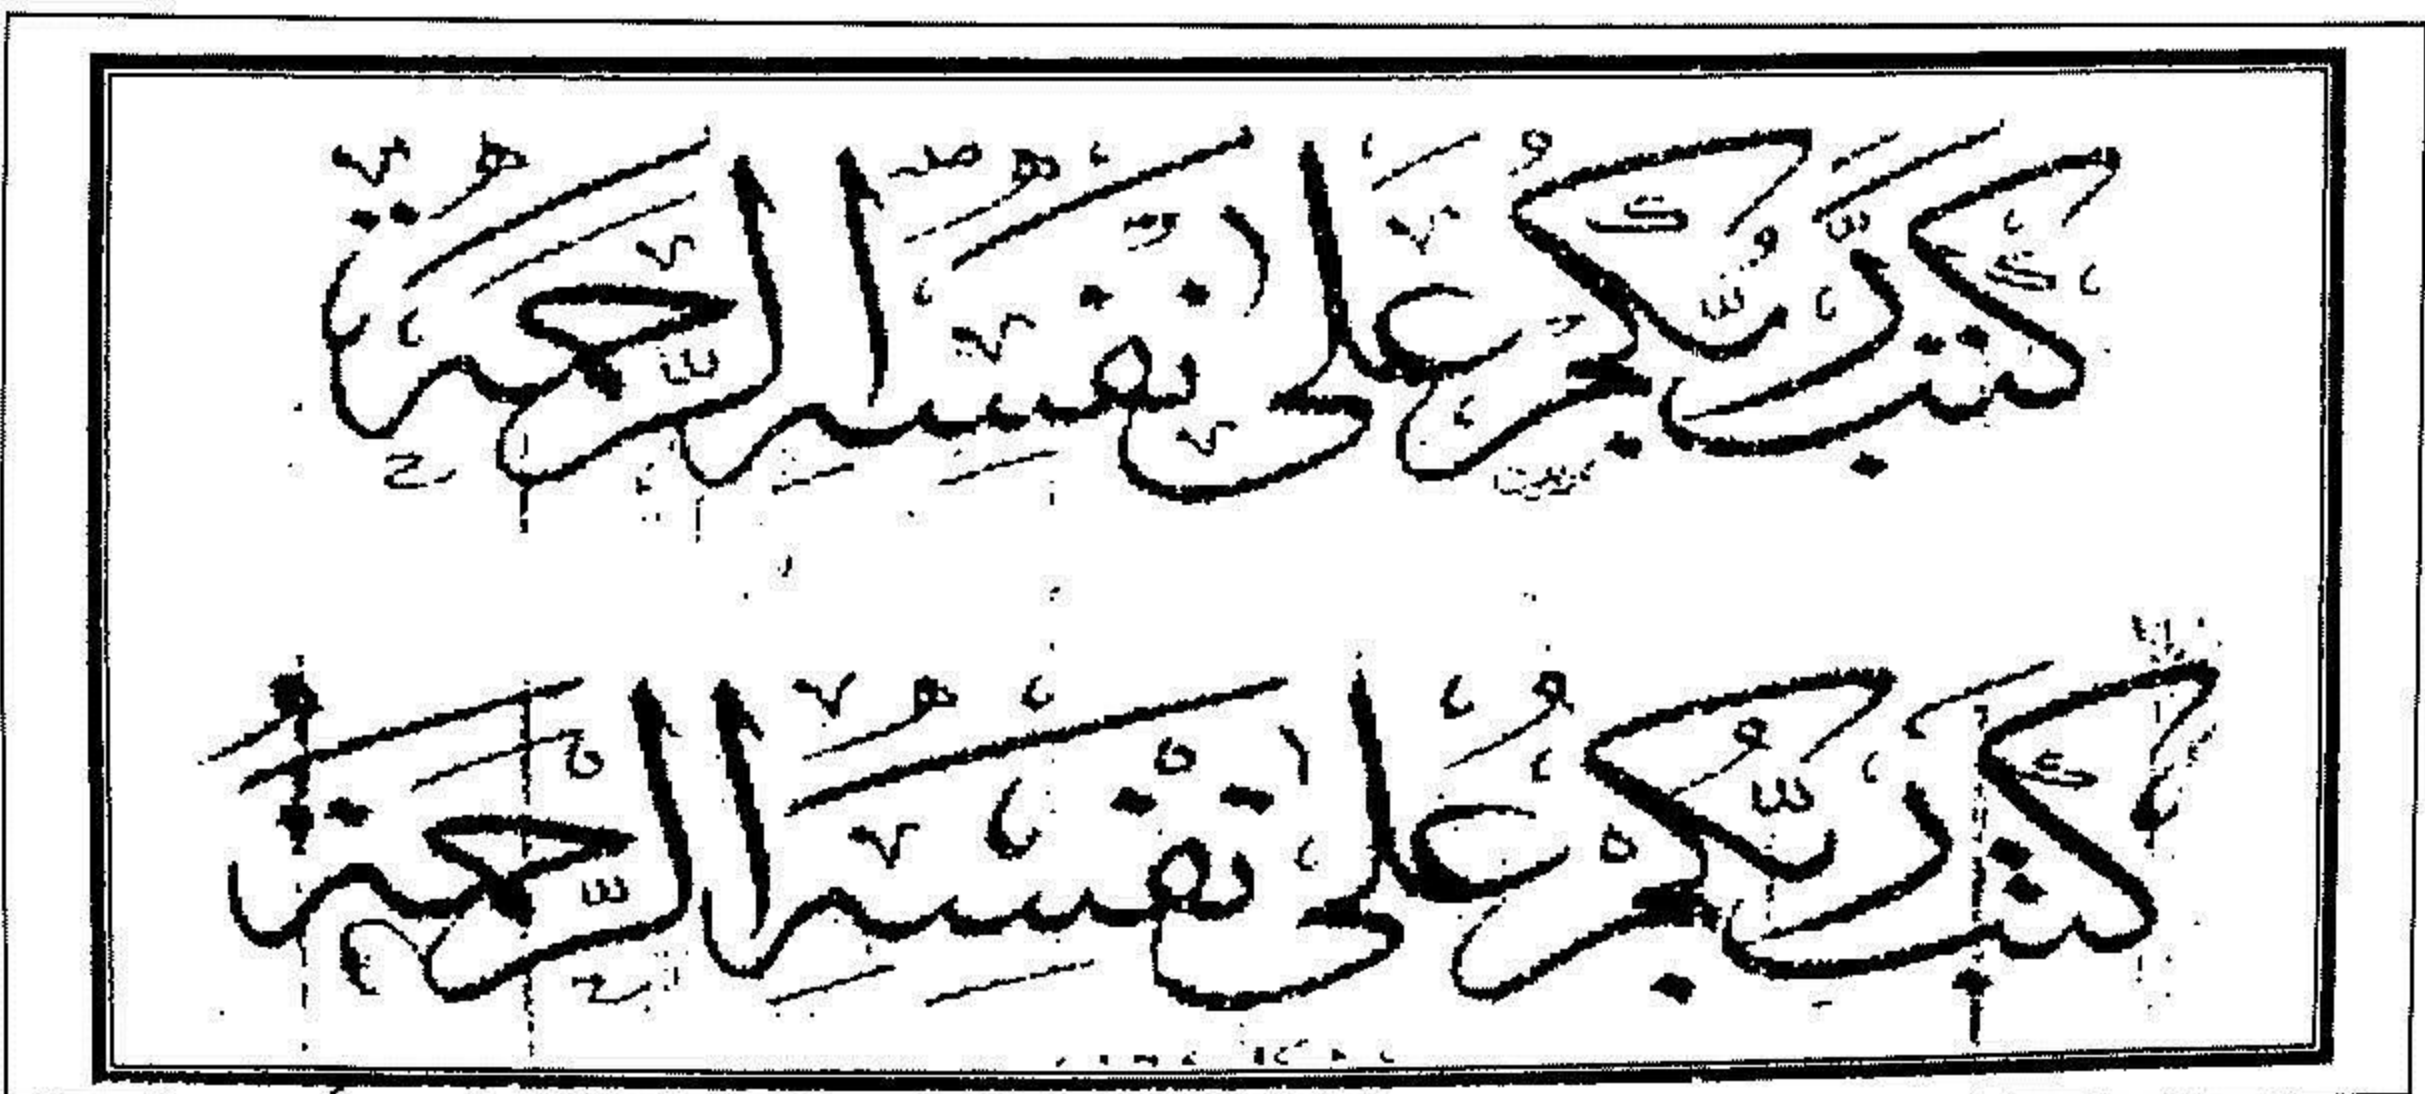 كتب ربكم على نفسه الرحمة
كتب ربكم على نفسه الرحمة